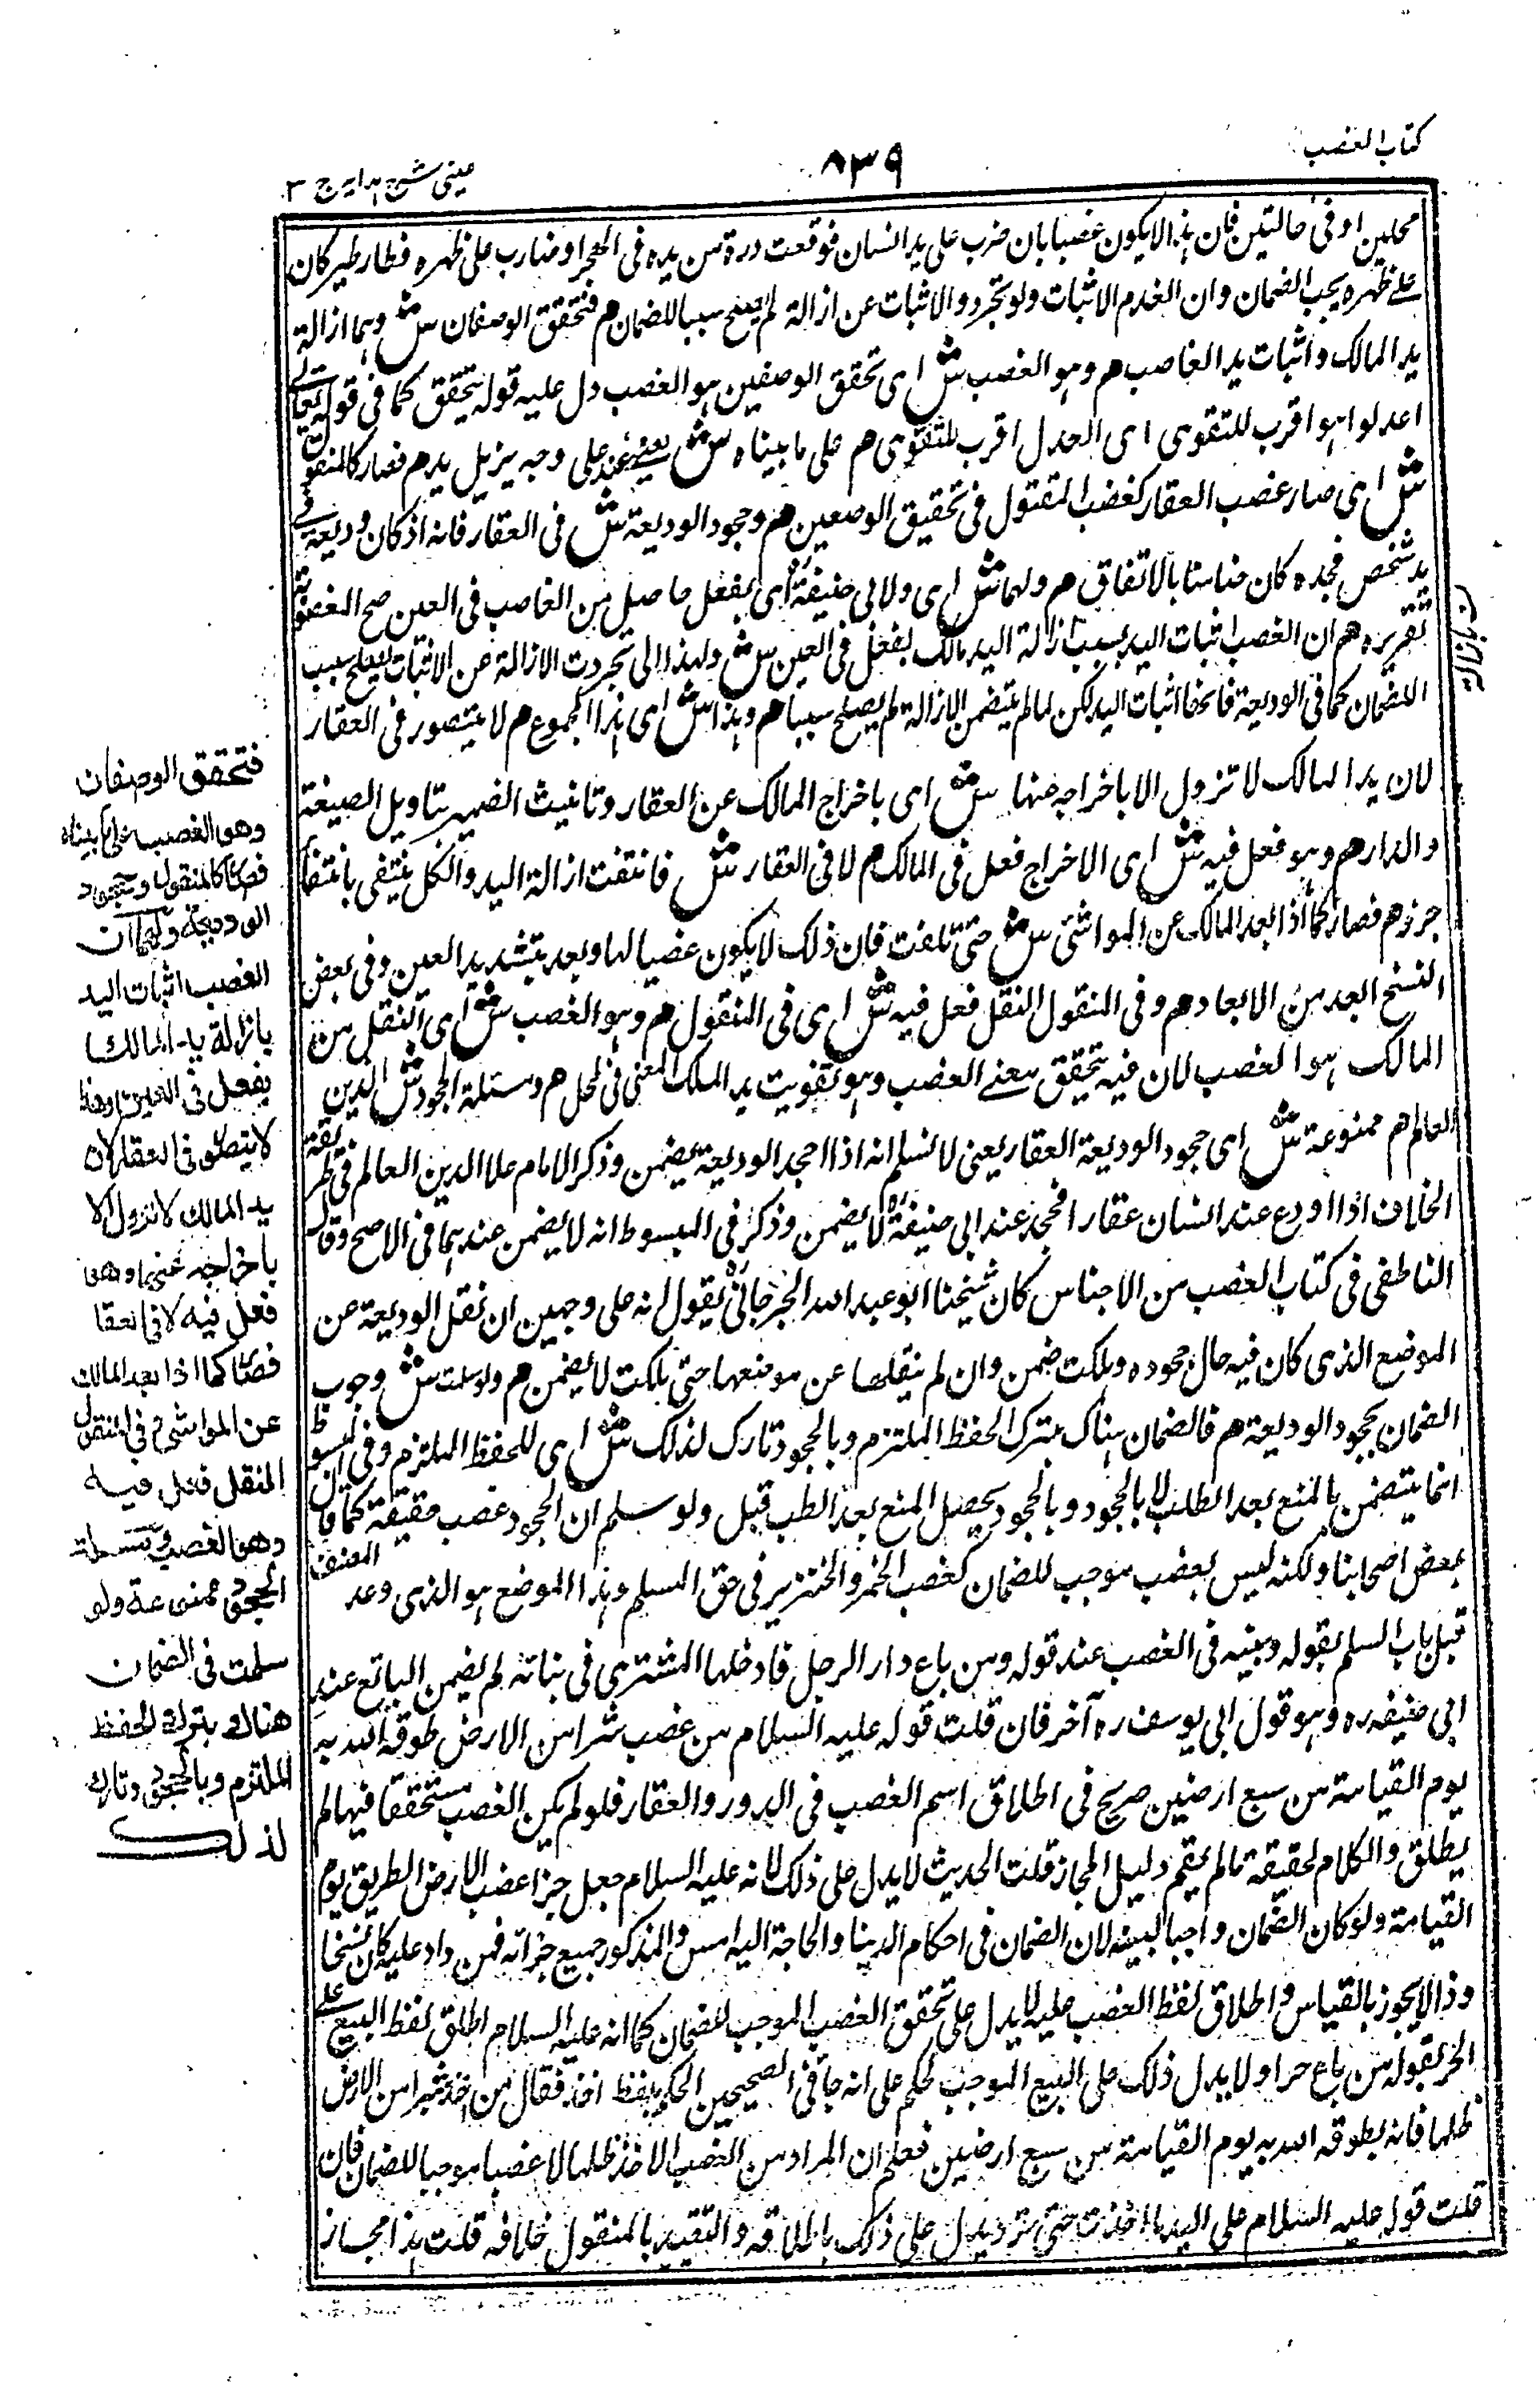 كتاب الغصب
٨٣٩
عينى شرح هدايه ج ٣
محلين او فى حالتين فان هذا لا يكون غصبا بان ضرب على يد انسان فوقعت درة من يده فى البحر او ضارب على ظهره فطار طير كان
على ظهره يجب الضمان وان انعدم الاثبات ولو تجرد والاثبات عن ازالة لم يصلح سببا للضمان هم فتحقق الوصفان ش وهما ازالة
يد المالك واثبات يد الغاصب هم وهو الغصب ش اى تحقق الوصفين هو الغصب دل عليه قوله يتحقق كما فى قوله تعالى
اعدلوا هو اقرب للتقوى اى العدل اقرب للتقوى هم على ما بيناه ش يعنى عند على وجه يزيل يده هم فصار كالمنقول
ش اى صار غصب العقار كغصب المنقول فى تحقيق الوصفين هم وجحود الوديعة ش فى العقار فانه اذ كان وديعة فى
يد شخص فجحده كان ضامنا بالاتفاق هم ولهما ش اى ولابى حنيفة اى بفعل حاصل من الغاصب فى العين صح
تقريره هم ان الغصب اثبات اليد بسبب ازالة اليد مالك بفعل فى العين ش ولهذا الى تجردت الازالة عن الاثبات يصلح سبب
الضمان كما فى الوديعة فانها اثبات اليد لكن لما لم يتضمن الازالة لم يصلح سببا هم وهذا ش اى هذا المجموع هم لا يتصور فى العقار
لان يد المالك لا تزول الا باخراجه عنها ش اى باخراج المالك عن العقار وتانيث الضمير بتاويل الصيغة
والدار هم وهو فعل فيه ش اى الاخراج فعل فى المالك هم لا فى العقار ش فانتفت ازالة اليد والكل ينتفى بانتفاء
جزءه هم فصار كما اذا بعد المالك عن المواشى ش حتى تلفت فان ذلك لا يكون غصبا لها وبعد بتشديد العين وفى بعض
النسخ ابعد من الابعاد هم وفى المنقول النقل فعل فيه ش اى فى المنقول هم وهو الغصب ش اى النقل من
المالك هو الغصب لان فيه تحقق معنى الغصب وهو تفويت يد الملك المعنى فى المحل هم ومسئلة الجحود ش الدين
العالم هم ممنوعة ش اى جحود الوديعة العقار يعنى لا نسلم انه اذا جحد الوديعة يضمن وذكر الامام علاء الدين العالم فى طريقة
الخلاف اذا اودع عند انسان عقارا فجحد عند ابى حنيفة لا يضمن وذكر فى المبسوط انه لا يضمن عندهما فى الاصح وقال
الناطفى فى كتاب الغصب من الاجناس كان شيخنا ابو عبد الله الجرجانى يقول انه على وجهين ان نقل الوديعة عن
الموضع الذى كان فيه حال جحوده وهلكت ضمن وان لم ينقلها عن موضعها حتى هلكت لا يضمن هم ولو سلمت ش وجوب
الضمان بجحود الوديعة هم فالضمان هناك بترك الحفظ الملتزم وبالجحود تارك لذلك ش اى للحفظ الملتزم وفى المبسوط
انما يتضمن بالمنع بعد الطلب لا بالجحود وبالجحود يحصل المنع بعد الطلب قبل ولو سلم ان الجحود غصب حقيقة كما قال
بعض اصحابنا ولكنه ليس بغصب موجب للضمان كغصب الخمر والخنزير فى حق المسلم وهذا الموضع هو الذى وعد المصنف
قبل باب السلم بقوله وبينه فى الغصب عند قوله ومن باع دار الرجل فادخلها المشترى فى بنائه لم يضمن البائع عند
ابى حنيفه ره وهو قول ابى يوسف ره آخر فان قلت قوله عليه السلام من غصب شبرا من الارض طوقه الله به
يوم القيامة من سبع ارضين صريح فى اطلاق اسم الغصب فى الدور والعقار فلو لم يكن الغصب متحققا فيها لم
يطلق والكلام لحقيقة مالم يقم دليل المجاز قلت الحديث لا يدل على ذلك لانه عليه السلام جعل جزا غصب الارض الطريق يوم
القيامة ولو كان الضمان واجبا لبينه لان الضمان فى احكام الدينا والحاجة اليه امس والمذكور جميع جزائه فمن زاد عليه كان نسخا
وذا لا يجوز بالقياس واطلاق لفظ الغصب عليه لا يدل على تحقق الغصب الموجب لضمان كما انه عليه السلام اطلق لفظ البيع على
الحر بقوله من باع حرا ولا يدل ذلك على البيع الموجب لحكم على انه جاء فى الصحيحين الحكم بلفظ اخذ فقال من اخذ شبرا من الارض
ظلما فانه يطوقه الله به يوم القيامة من سبع ارضين فعلم ان المراد من الغصب الاخذ ظلما لا غصبا موجبا للضمان فان
قلت قوله عليه السلام على اليد ما اخذت حتى ترد يدل على ذلك باطلاقه والتقييد بالمنقول خلافه قلت هذا مجاز
فتحقق الوصفان
وهو الغصب على ما بيناه
فصار كالمنقول وجحود
الوديعة ولهما ان
الغصب اثبات اليد
بازالة يد المالك
بفعل فى العين وهذا
لا يتصور فى العقار لان
يد المالك لا تزول الا
باخراجه عنها وهو
فعل فيه لا فى العقار
فصار كما اذا بعد المالك
عن المواشى وفى المنقول
النقل فعل فيه
وهو الغصب ومسئلة
الجحود ممنوعة ولو
سلمت فى الضمان
هناك بترك الحفظ
الملتزم وبالجحود تارك
لذلك